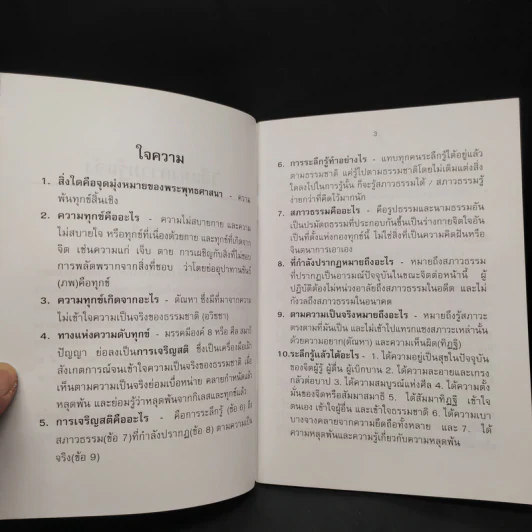 ใจความ
1. สิ่งใดคือจุดมุ่งหมายของพระพุทธศาสนา - ความ
พ้นทุกข์สิ้นเชิง
2. ความทุกข์คืออะไร - ความไม่สบายกาย และความ
ไม่สบายใจ หรือทุกข์ที่เนื่องด้วยกาย และทุกข์ที่เกิดจาก
จิต เช่นความแก่ เจ็บ ตาย การเผชิญกับสิ่งที่ไม่ชอบ
การพลัดพรากจากสิ่งที่ชอบ ว่าโดยย่ออุปาทานขันธ์
(ภพ)คือทุกข์
3. ความทุกข์เกิดจากอะไร - ตัณหา ซึ่งมีที่มาจากความ
ไม่เข้าใจความเป็นจริงของธรรมชาติ (อวิชชา)
4. ทางแห่งความดับทุกข์ - มรรคมีองค์ 8 หรือ ศีล สมาธิ
ปัญญา ย่อลงเป็นการเจริญสติ ซึ่งเป็นเครื่องมือเฝ้า
สังเกตการณ์จนเข้าใจความเป็นจริงของธรรมชาติ เมื่อ
เห็นตามความเป็นจริงย่อมเบื่อหน่าย คลายกำหนัดแล้ว
หลุดพ้น และย่อมรู้ว่าหลุดพ้นจากกิเลสและทุกข์แล้ว
5. การเจริญสติคืออะไร - คือการระลึกรู้ (ข้อ 6) ถึง
สภาวธรรม(ข้อ 7)ที่กำลังปรากฏ(ข้อ 8) ตามความเป็น
จริง(ข้อ 9)
3
6. การระลึกรู้ทำอย่างไร - แทบทุกคนระลึกรู้ได้อยู่แล้ว
ตามธรรมชาติ แค่รู้ไปตามธรรมชาติโดยไม่เติมแต่งสิ่ง
ใดลงไปในการรู้นั้น ก็จะรู้สภาวธรรมได้ / สภาวธรรมรู้
ง่ายกว่าที่คิดไว้มากนัก
7. สภาวธรรมคืออะไร - คือรูปธรรมและนามธรรมอัน
เป็นปรมัตถธรรมที่ประกอบกันขึ้นเป็นร่างกายจิตใจอัน
เป็นที่ตั้งแห่งกองทุกข์นี้ ไม่ใช่สิ่งที่เป็นความคิดฝันหรือ
จินตนาการเอาเอง
8. ที่กำลังปรากฏหมายถึงอะไร - หมายถึงสภาวธรรม
ที่ปรากฏเป็นอารมณ์ปัจจุบันในขณะจิตต่อหน้านี้ ผู้
ปฏิบัติต้องไม่หน่วงอาลัยถึงสภาวธรรมในอดีต และไม่
กังวลถึงสภาวธรรมในอนาคต
9. ตามความเป็นจริงหมายถึงอะไร - หมายถึงรู้สภาวะ
ตรงตามที่มันเป็น และไม่เข้าไปแทรกแซงสภาวะเหล่านั้น
ด้วยความอยาก(ตัณหา) และความเห็นผิด(ทิฏฐิ)
10.ระลึกรู้แล้วได้อะไร - 1. ได้ความอยู่เป็นสุขในปัจจุบัน
ของจิตผู้รู้ ผู้ตื่น ผู้เบิกบาน 2. ได้ความละอายและเกรง
กลัวต่อบาป 3. ได้ความสมบูรณ์แห่งศีล 4. ได้ความตั้ง
มั่นของจิตหรือสัมมาสมาธิ 5. ได้สัมมาทิฏฐิ เข้าใจ
ตนเอง เข้าใจผู้อื่น และเข้าใจธรรมชาติ 6. ได้ความเบา
บางจางคลายจากความยึดถือทั้งหลาย และ 7. ได้
ความหลุดพ้นและความรู้เกี่ยวกับความหลุดพ้น